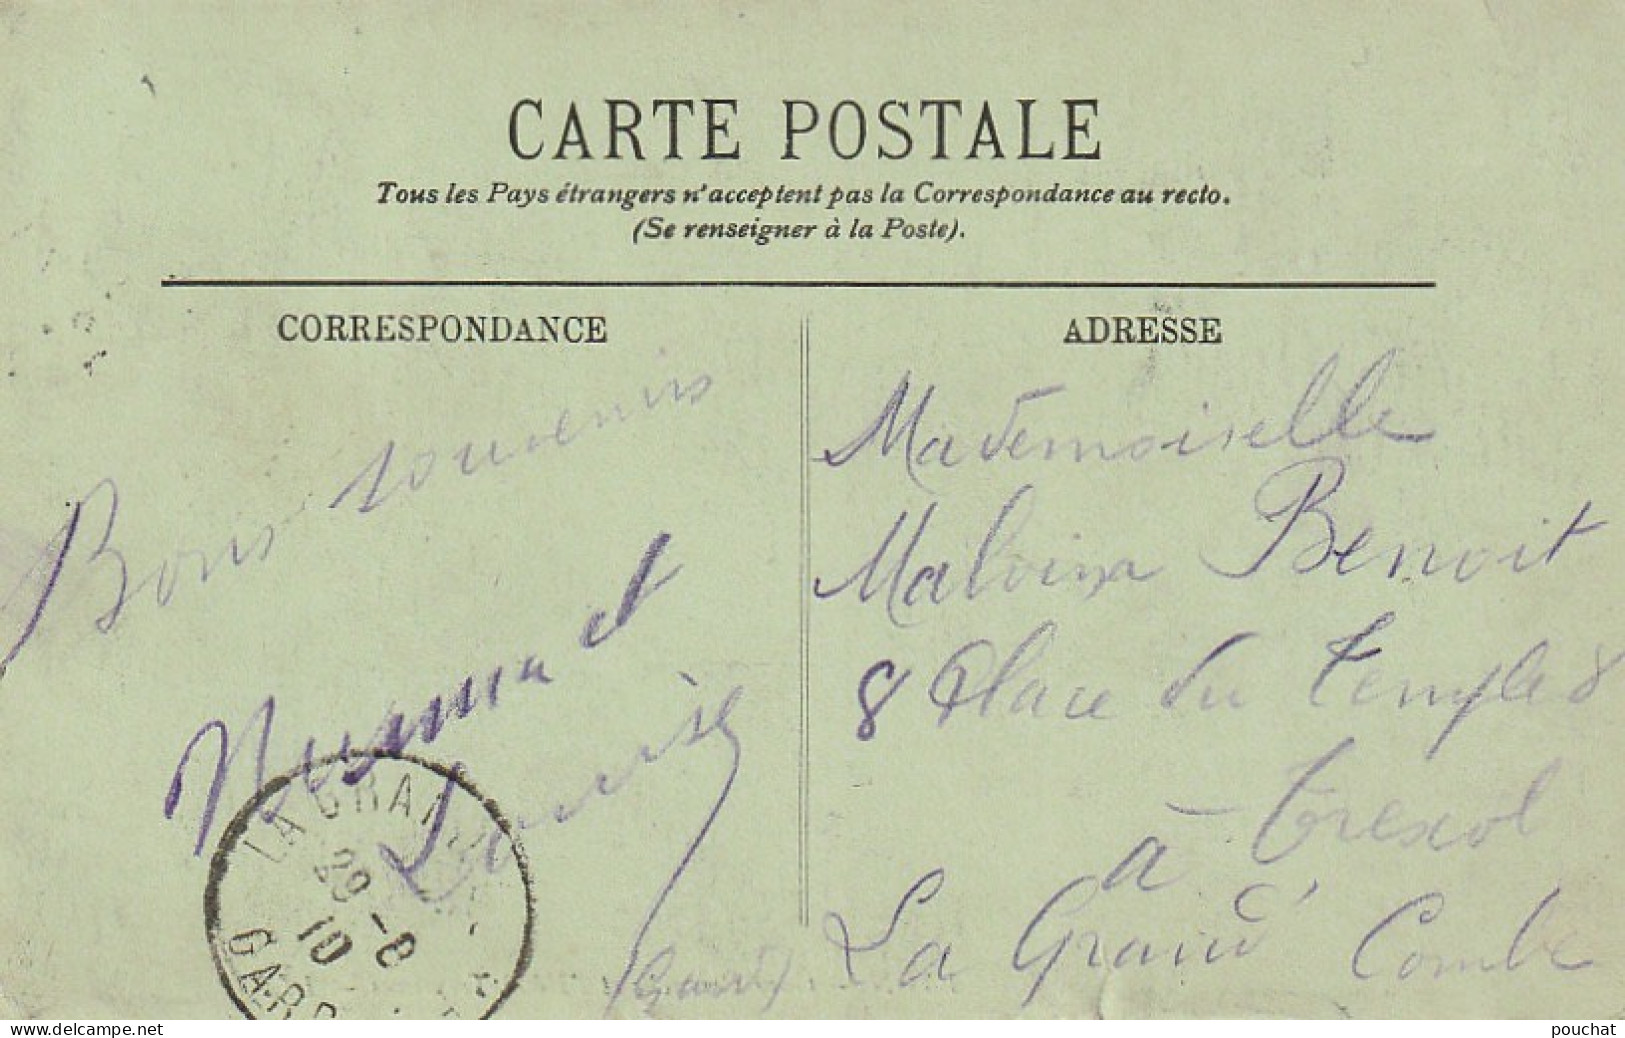 CARTE POSTALE
Tous les Pays étrangers n'acceptent pas la Correspondance au recto.
(Se renseigner à la Poste).
CORRESPONDANCE
ADRESSE
Bons souvenirs
Numa et
Louise
Mademoiselle
Malvina Benoit
8 Place du temple 8
à Trescol
La Grand' Combe
(Gard)
LA GRAND
29 - 8
10
GARD
www.delcampe.net
pouchat